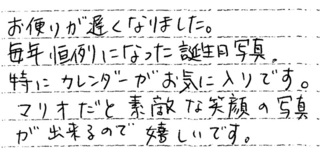 お便りが遅くなりました。
毎年恒例になった誕生日写真。
特にカレンダーがお気に入りです。
マリオだと素敵な笑顔の写真
が出来るので嬉しいです。